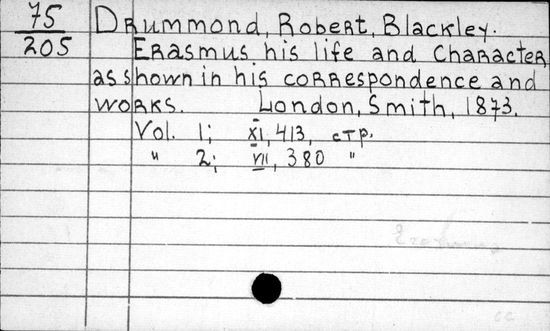 75
205
Drummond, Robert, Blackley.
Erasmus his life and Character
as shown in his correspondence and
works. London, Smith, 1873.
Vol. 1; XI, 413, стр.
" 2; VII, 380 "
Erasmus
cc